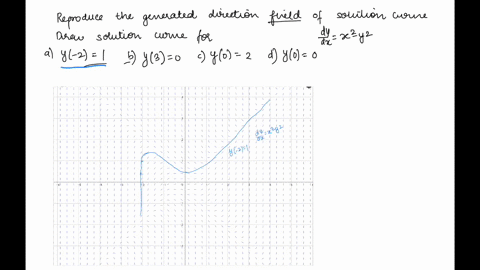 Reproduce the generated direction field of solution curve
Draw solution curve for dy/dx = x²y²
a) y(-2) = 1 b) y(3) = 0 c) y(0) = 2 d) y(0) = 0
dy/dx = x²y²
y(-2)=1